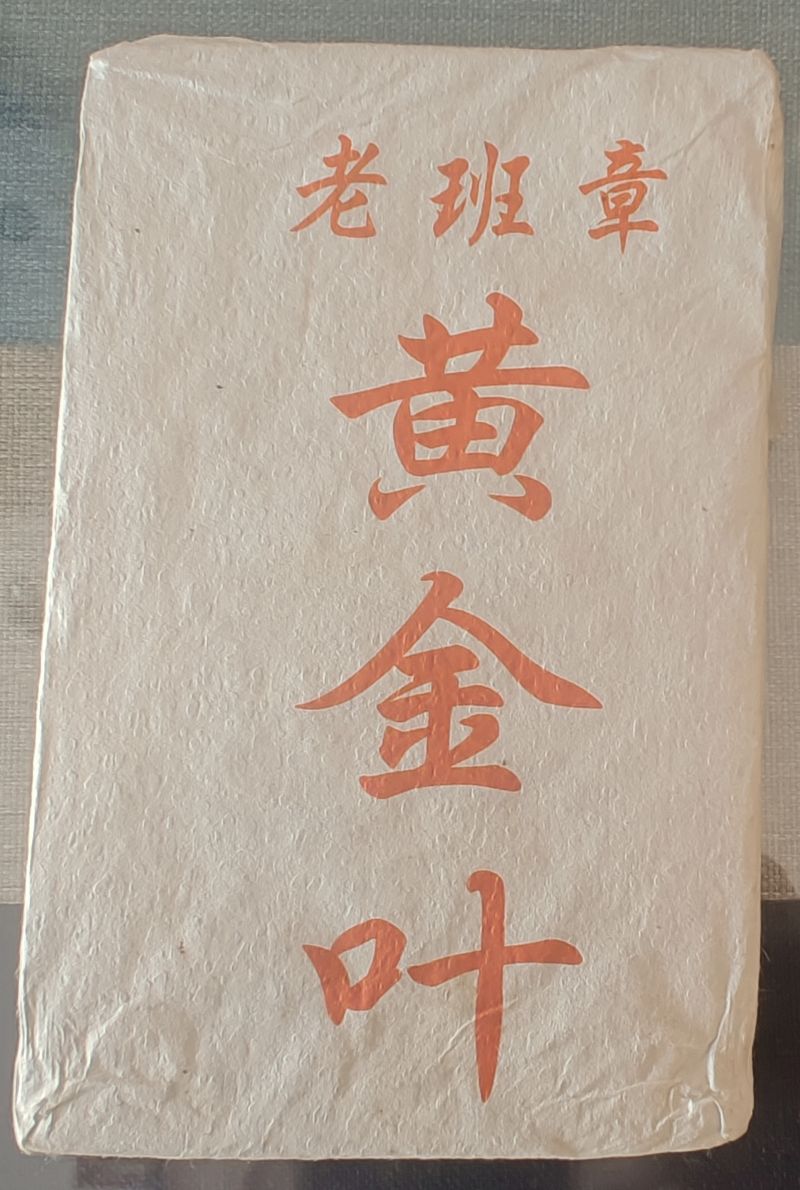 老班章
黄金叶